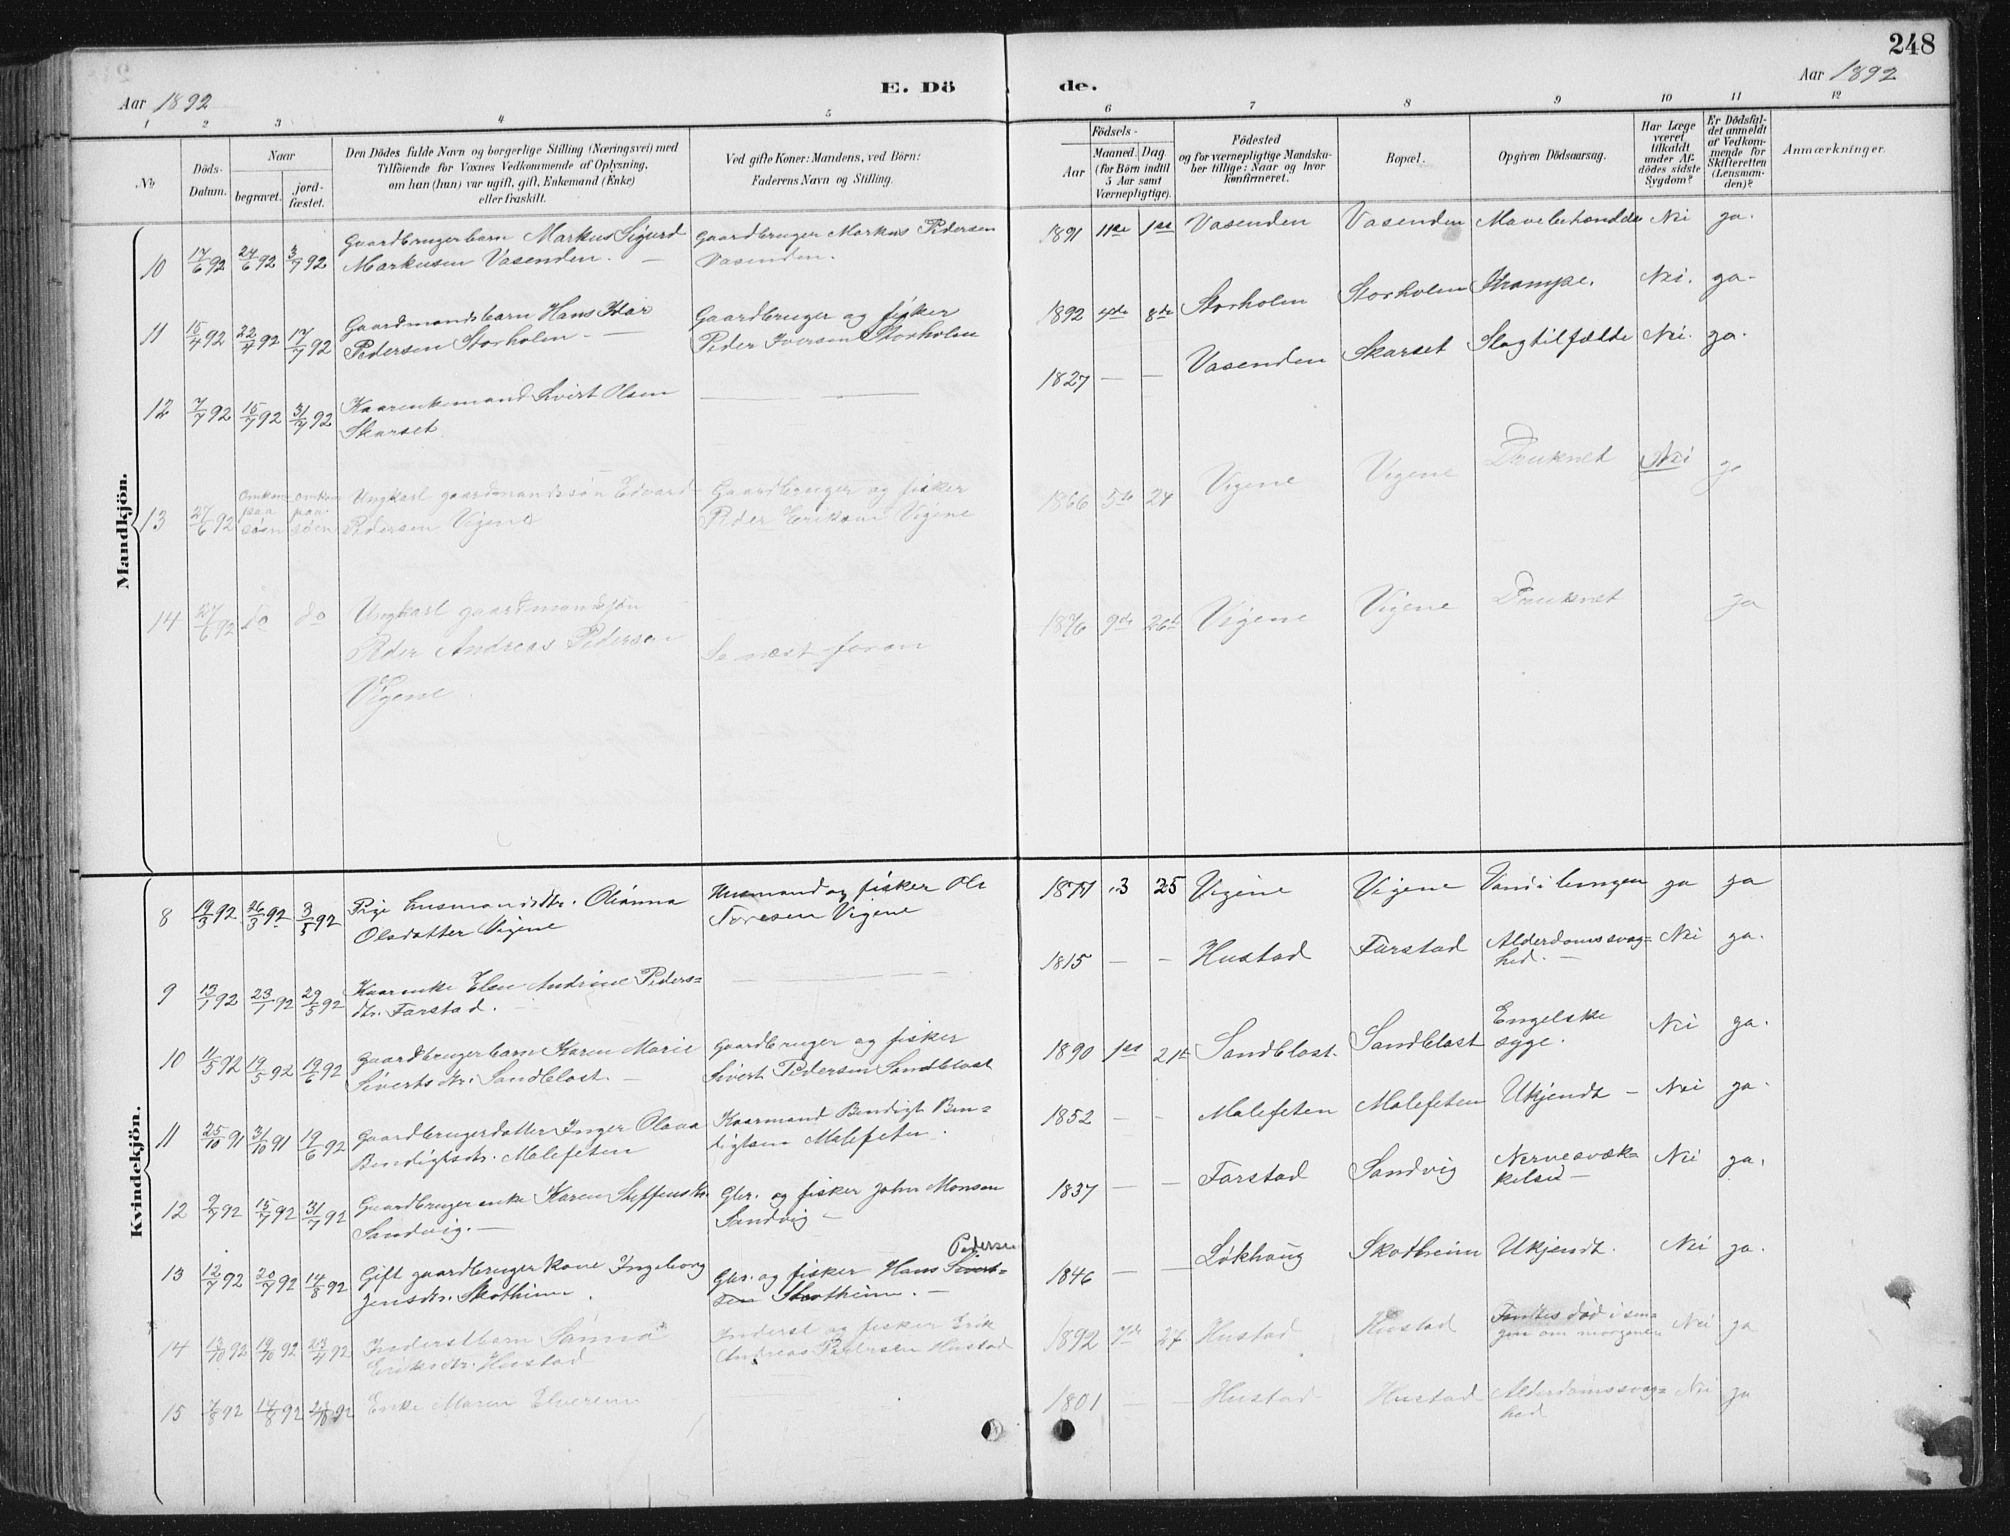 248
Aar 1892
E. Dö
de.
Aar 1892
1 2 3 4 5 6 7 8 9 10 11 12
No
Döds-Datum.
Naar
begravet.
jord-fæstet.
Den Dödes fulde Navn og borgerlige Stilling (Næringsvei) med
Tilföiende for Voxnes Vedkommende af Oplysning,
om han (hun) var ugift, gift, Enkemand (Enke)
eller fraskilt.
Ved gifte Koner: Mandens, ved Börn:
Faderens Navn og Stilling.
Födsels-
Aar
Maaned. Dag.
(for Börn indtil
5 Aar samt
Værnepligtige).
Födested
og for værnepligtige Mandska-
ber tillige: Naar og hvor
konfirmeret.
Bopæl.
Opgiven Dödsaarsag.
Har Læge
været
tilkaldt
under Af-
dödes sidste
Sygdom?
Er Dödsfal-
det anmeldt
af Vedkom-
mende for
Skifteretten
(Lensman-
den)?
Anmærkninger.
Mandkjön.
10 17/6 92 24/6 92 3/7 92 Gaardbrugerbarn Markus Sigurd
Markusen Vasenden. —
Gaardbruger Markus Pedersen
Vasenden.
1891 11te 1ste Vasenden Vasenden Mavebetændelse Nei ja.
11 15/4 92 22/4 92 17/7 92 Gaardmandsbarn Hans Ivar
Pedersen Storholm —
Gaardbruger og fisker
Peder Iversen Storholm
1892 4de 8de Storholm Storholm Krampe. Nei. ja.
12 7/7 92 15/7 92 31/7 92 Kaarenkemand Sivert Olsen
Skarset
1827 — — Vasenden Skarset Slagtilfælde Nei. ja.
13 27/6 92 omkom paa søen omkom paa søen Ungkarl gaardmandssøn Edvard
Pedersen Vigene
Gaardbruger og fisker
Peder Eriksen Vigene
1866 5te 24 Vigene Vigene Druknet Nei ja
14 27/6 92 do do Ungkarl gaardmandssøn
Peder Andreas Pedersen
Vigene
Se næst foran
1876 9de 26de Vigene Vigene Druknet ja
Kvindekjön.
8 19/3 92 26/3 92 3/5 92 Pige husmandsdtr. Olianna
Olsdatter Vigene
Husmand og fisker Ole
Toresen Vigene
1877 3 25 Vigene Vigene Vand i lungen ja ja
9 13/1 92 23/1 92 29/5 92 Kaarenke Elen Andrine Peders-
dtr. Farstad. —
1815 — — Hustad Farstad Alderdomssvag-
hed. — Nei ja.
10 11/5 92 19/5 92 19/6 92 Gaardbrugerbarn Karen Marie
Sivertsdtr. Sandblost. —
Gaardbruger og fisker
Sivert Pedersen Sandblost
1890 1ste 21de Sandblost. Sandblost Engelske
syge. Nei ja.
11 25/10 91 31/10 91 19/6 92 Gaardbrugerdatter Inger Olava
Bendigtsdtr. Malefeten
Kaarmand Bendigt Ben-
digtsen Malefeten.
1852 — — Malefeten Malefeten Ukjendt — Nei ja.
12 9/7 92 15/7 92 31/7 92 Gaardbrugerenke Karen Steffensdtr.
Sandvig. —
Gbr. og fisker John Monsen
Sandvig —
1837 — — Farstad Sandvig Nervesvæk-
kelse — Nei ja.
13 12/7 92 20/7 92 14/8 92 Gift gaardbrugerkone Ingeborg
Jensdtr. Skotheim.
Pedersen
Gbr. og fisker Hans Sivert-
sen Skotheim. —
1846 — — Løkhaug Skotheim Ukjendt. Nei ja.
14 13/10 92 19/10 92 Inderstbarn Sanna
Eriksdtr. Hustad
Inderst og fisker Erik
Andreas Pedersen Hustad
1892 7de 27 Hustad Hustad Fandtes død i sen-
gen om morgenen Nei ja
15 7/8 92 14/8 92 Enke Maren
1801 — — Hustad Hustad Alderdomssvag-
hed Nei ja